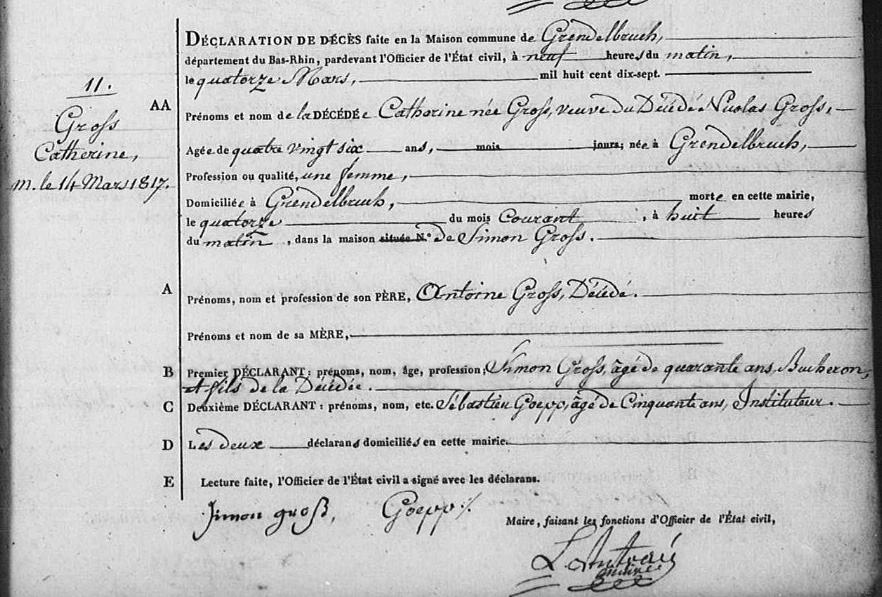 DÉCLARATION DE DÉCÈS faite en la Maison commune de Grendelbruch,
département du Bas-Rhin, pardevant l'Officier de l'État civil, à neuf heures du matin,
le quatorze Mars, mil huit cent dix-sept.
11.
Gross
Catherine,
m. le 14 Mars 1817.
AA
Prénoms et nom de la DÉCÉDÉe Catherine née Gross, veuve du Décédé Nicolas Gross,
Agée de quatre vingt six ans, mois jours; née à Grendelbruch,
Profession ou qualité, une femme,
Domiciliée à Grendelbruch, morte en cette mairie,
le quatorze du mois Courant, à huit heures
du matin, dans la maison située N.° de Simon Gross.
A
Prénoms, nom et profession de son PÈRE, Antoine Gross, Décédé.
Prénoms et nom de sa MÈRE,
B Premier DÉCLARANT: prénoms, nom, âge, profession; Simon Gross, âgé de quarante ans, Bucheron,
et fils de la Décédée.
C Deuxième DÉCLARANT: prénoms, nom, etc. Sébastien Goepp, âgé de Cinquante ans, Instituteur.
D Les deux déclarans domiciliés en cette mairie.
E Lecture faite, l'Officier de l'État civil a signé avec les déclarans.
Simon groß, Goepp
Maire, faisant les fonctions d'Officier de l'État civil,